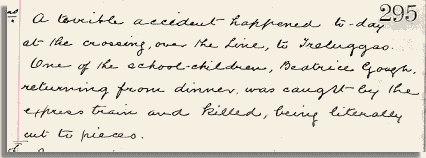 295
A terrible accident happened to-day
at the crossing, over the Line, to Treluggao.
One of the school-children, Beatrice Gough,
returning from dinner, was caught by the
express train and killed, being literally
cut to pieces.